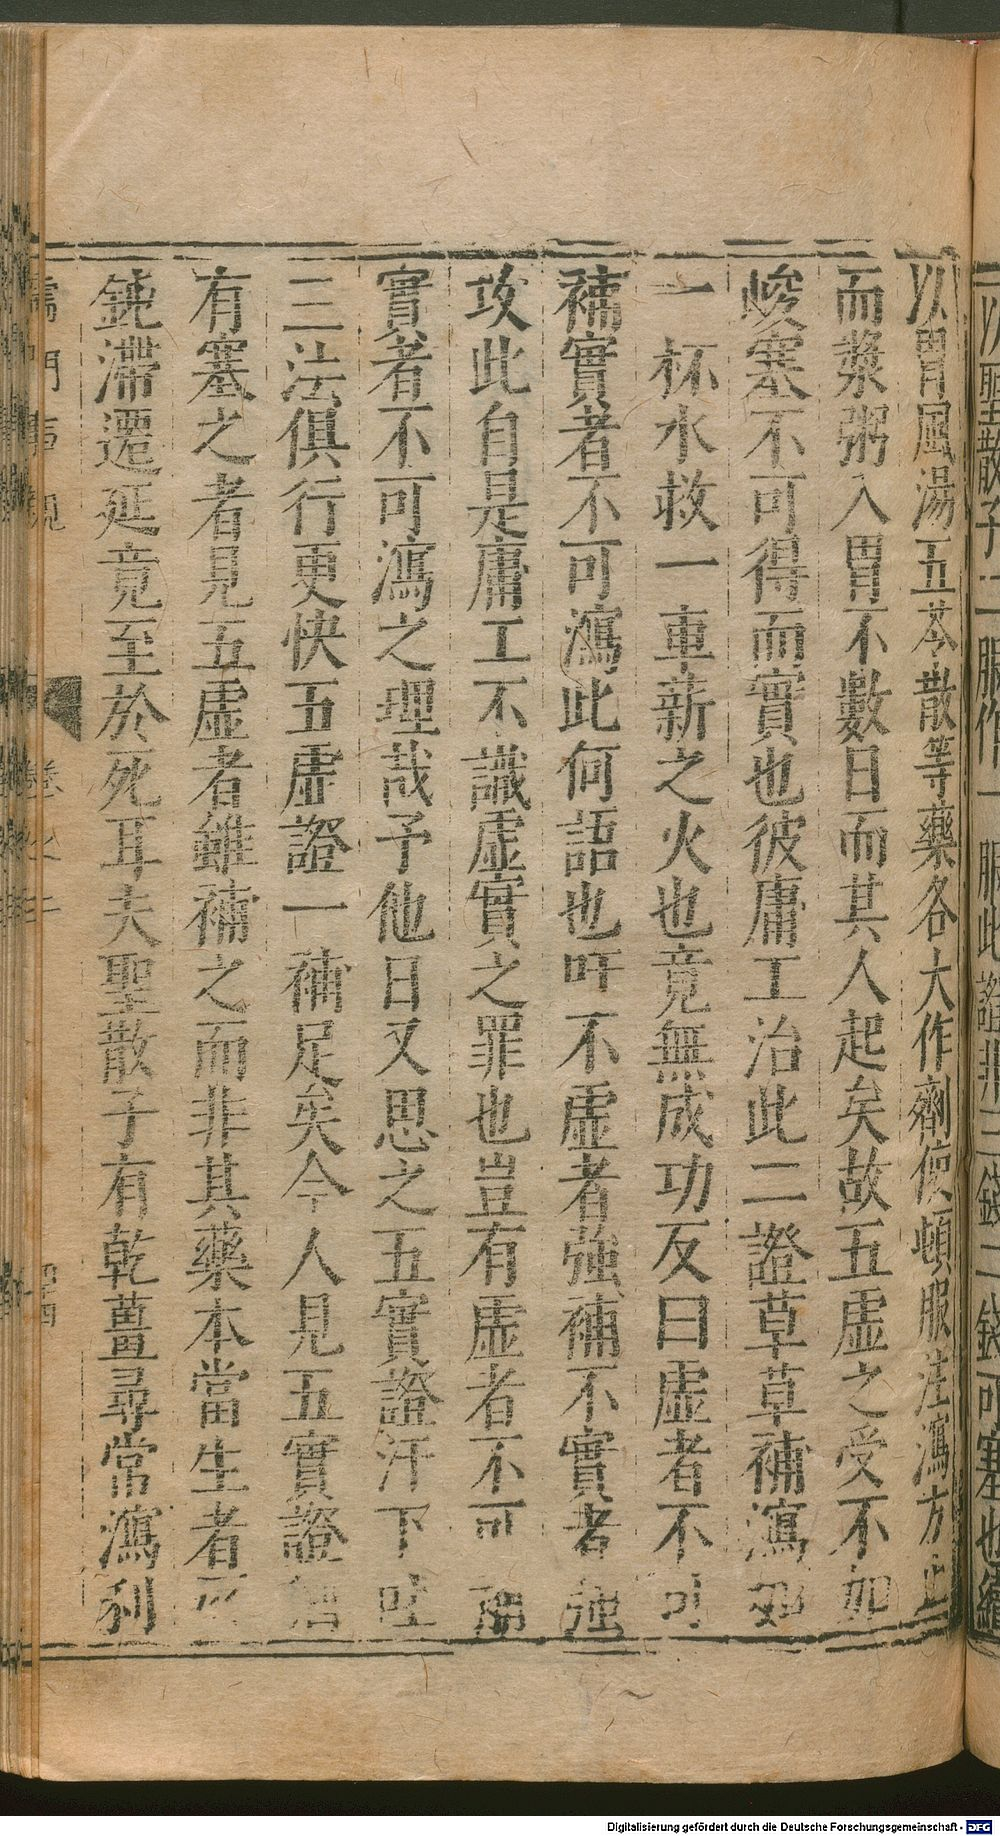 以聖散子二服作一服此證非三錢二錢可塞也續
以胃風湯五苓散等藥各大作劑使頓服注瀉方止
而漿粥入胃不數日而其人起矣故五虛之受不加
峻塞不可得而實也彼庸工治此二證草草補瀉如
一杯水救一車薪之火也竟無成功反曰虛者不可
補實者不可瀉此何語也吁不虛者強補不實者強
攻此自是庸工不識虛實之罪也豈有虛者不可補
實者不可瀉之理哉予他日又思之五實證汗下吐
三法俱行更快五虛證一補足矣今人見五實證
有塞之者見五虛者雖補之而非其藥本當生者
鈍滯遷延竟至於死耳夫聖散子有乾薑尋常瀉利
儒門事親
卷之二
Digitalisierung gefördert durch die Deutsche Forschungsgemeinschaft - DFG